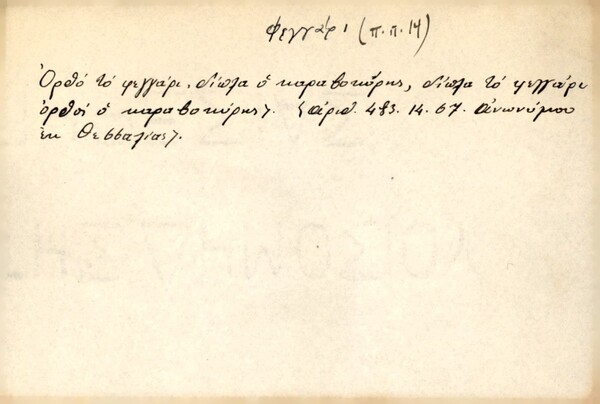 Φεγγάρι (π.π. 14)
Ὀρθό τό φεγγάρι, δίπλα ὁ καραβοκύρης, δίπλα τό φεγγάρι
ὀρθός ὁ καραβοκύρης). (ἀριθ. 483. 14. 67. Ἀνωνύμου
ἐκ Θεσσαλίας).